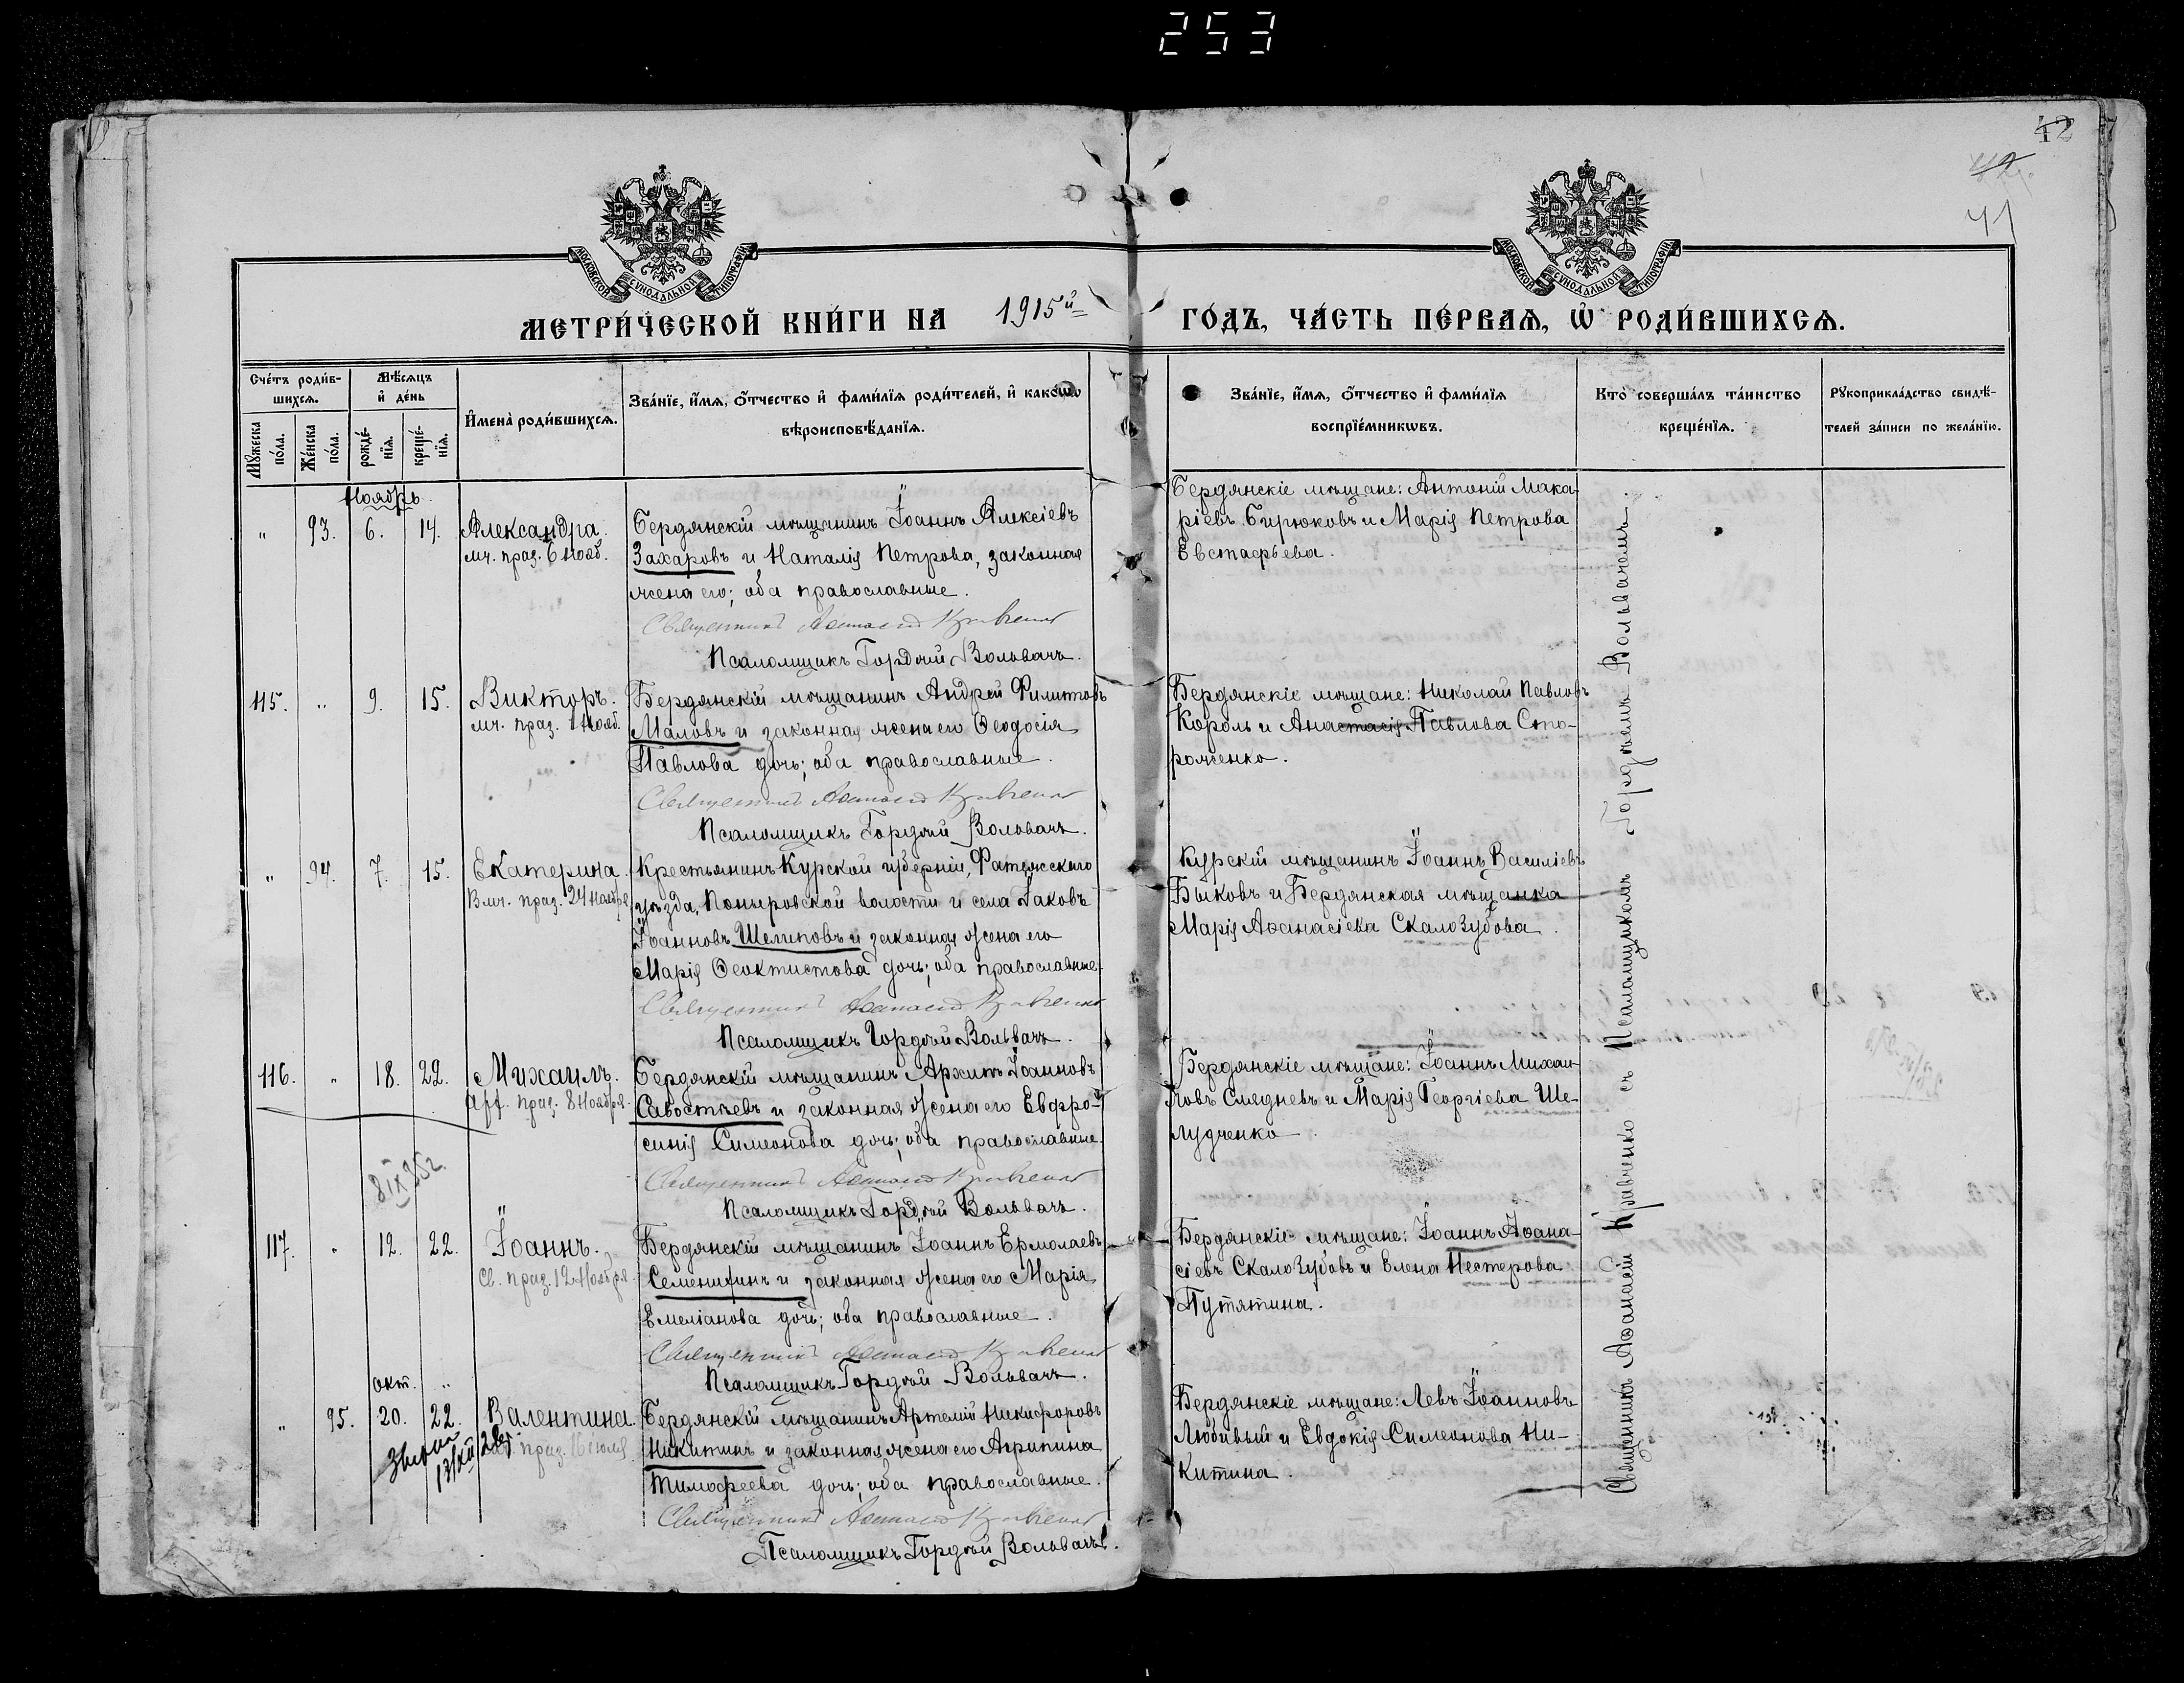 253
42
41
МОСКОВСКОЙ СѴНОДАЛЬНОЙ ТИПОГРАФІИ
МОСКОВСКОЙ СѴНОДАЛЬНОЙ ТИПОГРАФІИ
МЕТРИ́ЧЕСКОЙ КНИ́ГИ НА 1915й ГО́ДЪ, ЧА́СТЬ ПЕ́РВАѦ, Ѡ҆ РОДИ́ВШИХСѦ.
Сче́тъ роди́в-
шихсѧ.
Мѣ́сѧцъ
и҆ де́нь
Мꙋ́жеска по́ла.
Же́нска по́ла.
рожде́-
нїѧ.
креще́-
нїѧ.
И҆мена̀ роди́вшихсѧ.
Зва́нїе, и҆́мѧ, ѻ҆́тчество и҆ фами́лїѧ роди́телей, и҆ како́гѡ
вѣроисповѣ́данїѧ.
Зва́нїе, и҆́мѧ, ѻ҆́тчество и҆ фами́лїѧ
воспрїе́мникѡвъ.
Кто̀ соверша́лъ та́инство
креще́нїѧ.
Рꙋкоприкла́дство свидѣ́-
телей за́писи по жела́нїю.
Ноябрь.
" 93. 6. 14. Александра.
мч. праз. 6 Нояб.
Бердянскій мѣщанинъ Іоаннъ Алексіевъ
Захаровъ и Наталія Петрова, законная
жена его; оба православные.
Священникъ Аѳанасій Кравченко
Псаломщикъ Гордѣй Вольвачъ.
Бердянскіе мѣщане: Антоній Мака-
ріевъ Бирюковъ и Марія Петрова
Евстафьева.
115. " 9. 15. Викторъ.
мч. праз. 11 Нояб.
Бердянскій мѣщанинъ Андрей Филиповъ
Маловъ и законная жена его Ѳеодосія
Павлова дочь; оба православные.
Священникъ Аѳанасій Кравченко
Псаломщикъ Гордѣй Вольвачъ.
Бердянскіе мѣщане: Николай Павловъ
Король и Анастасія Павлова Сто-
роженко.
" 94. 7. 15. Екатерина.
Влмч. праз. 24 Ноября
Крестьянинъ Курской губерніи, Фатежскаго
уѣзда, Поныровской волости и села Іаковъ
Іоанновъ Шелиповъ и законная жена его
Марія Ѳеоктистова дочь; оба православные.
Священникъ Аѳанасій Кравченко
Псаломщикъ Гордѣй Вольвачъ.
Курскій мѣщанинъ Іоаннъ Василіевъ
Быковъ и Бердянская мѣщанка
Марія Аѳанасіева Скалозубова.
116. " 18. 22. Михаилъ.
Арх. праз. 8 Ноября.
Бердянскій мѣщанинъ Архипъ Іоанновъ
Савостьевъ и законная жена его Евфро-
синія Симеонова дочь; оба православные.
Священникъ Аѳанасій Кравченко
Псаломщикъ Гордѣй Вольвачъ.
Бердянскіе мѣщане: Іоаннъ Михаи-
ловъ Слядневъ и Марія Георгіева Ше-
лудченко.
8 IX 35г.
117. " 12. 22. Іоаннъ.
Св. праз. 12 Ноября.
Бердянскій мѣщанинъ Іоаннъ Ермолаевъ
Семенихинъ и законная жена его Марія
Емеліанова дочь; оба православные.
Священникъ Аѳанасій Кравченко
Псаломщикъ Гордѣй Вольвачъ.
Бердянскіе мѣщане: Іоаннъ Аѳана-
сіевъ Скалозубовъ и Елена Нестерова
Путятина.
окт. "
" 95. 20. 22. Валентина
праз. 16 июля
Бердянскій мѣщанинъ Артемій Никифоровъ
Никитинъ и законная жена его Агрипина
Тимофеева дочь; оба православные.
Священникъ Аѳанасій Кравченко
Псаломщикъ Гордѣй Вольвачъ.
Бердянскіе мѣщане: Левъ Іоанновъ
Любивый и Евдокія Симеонова Ни-
китина.
Священникъ Аѳанасій Кравченко съ Псаломщикомъ Гордѣемъ Вольвачемъ.